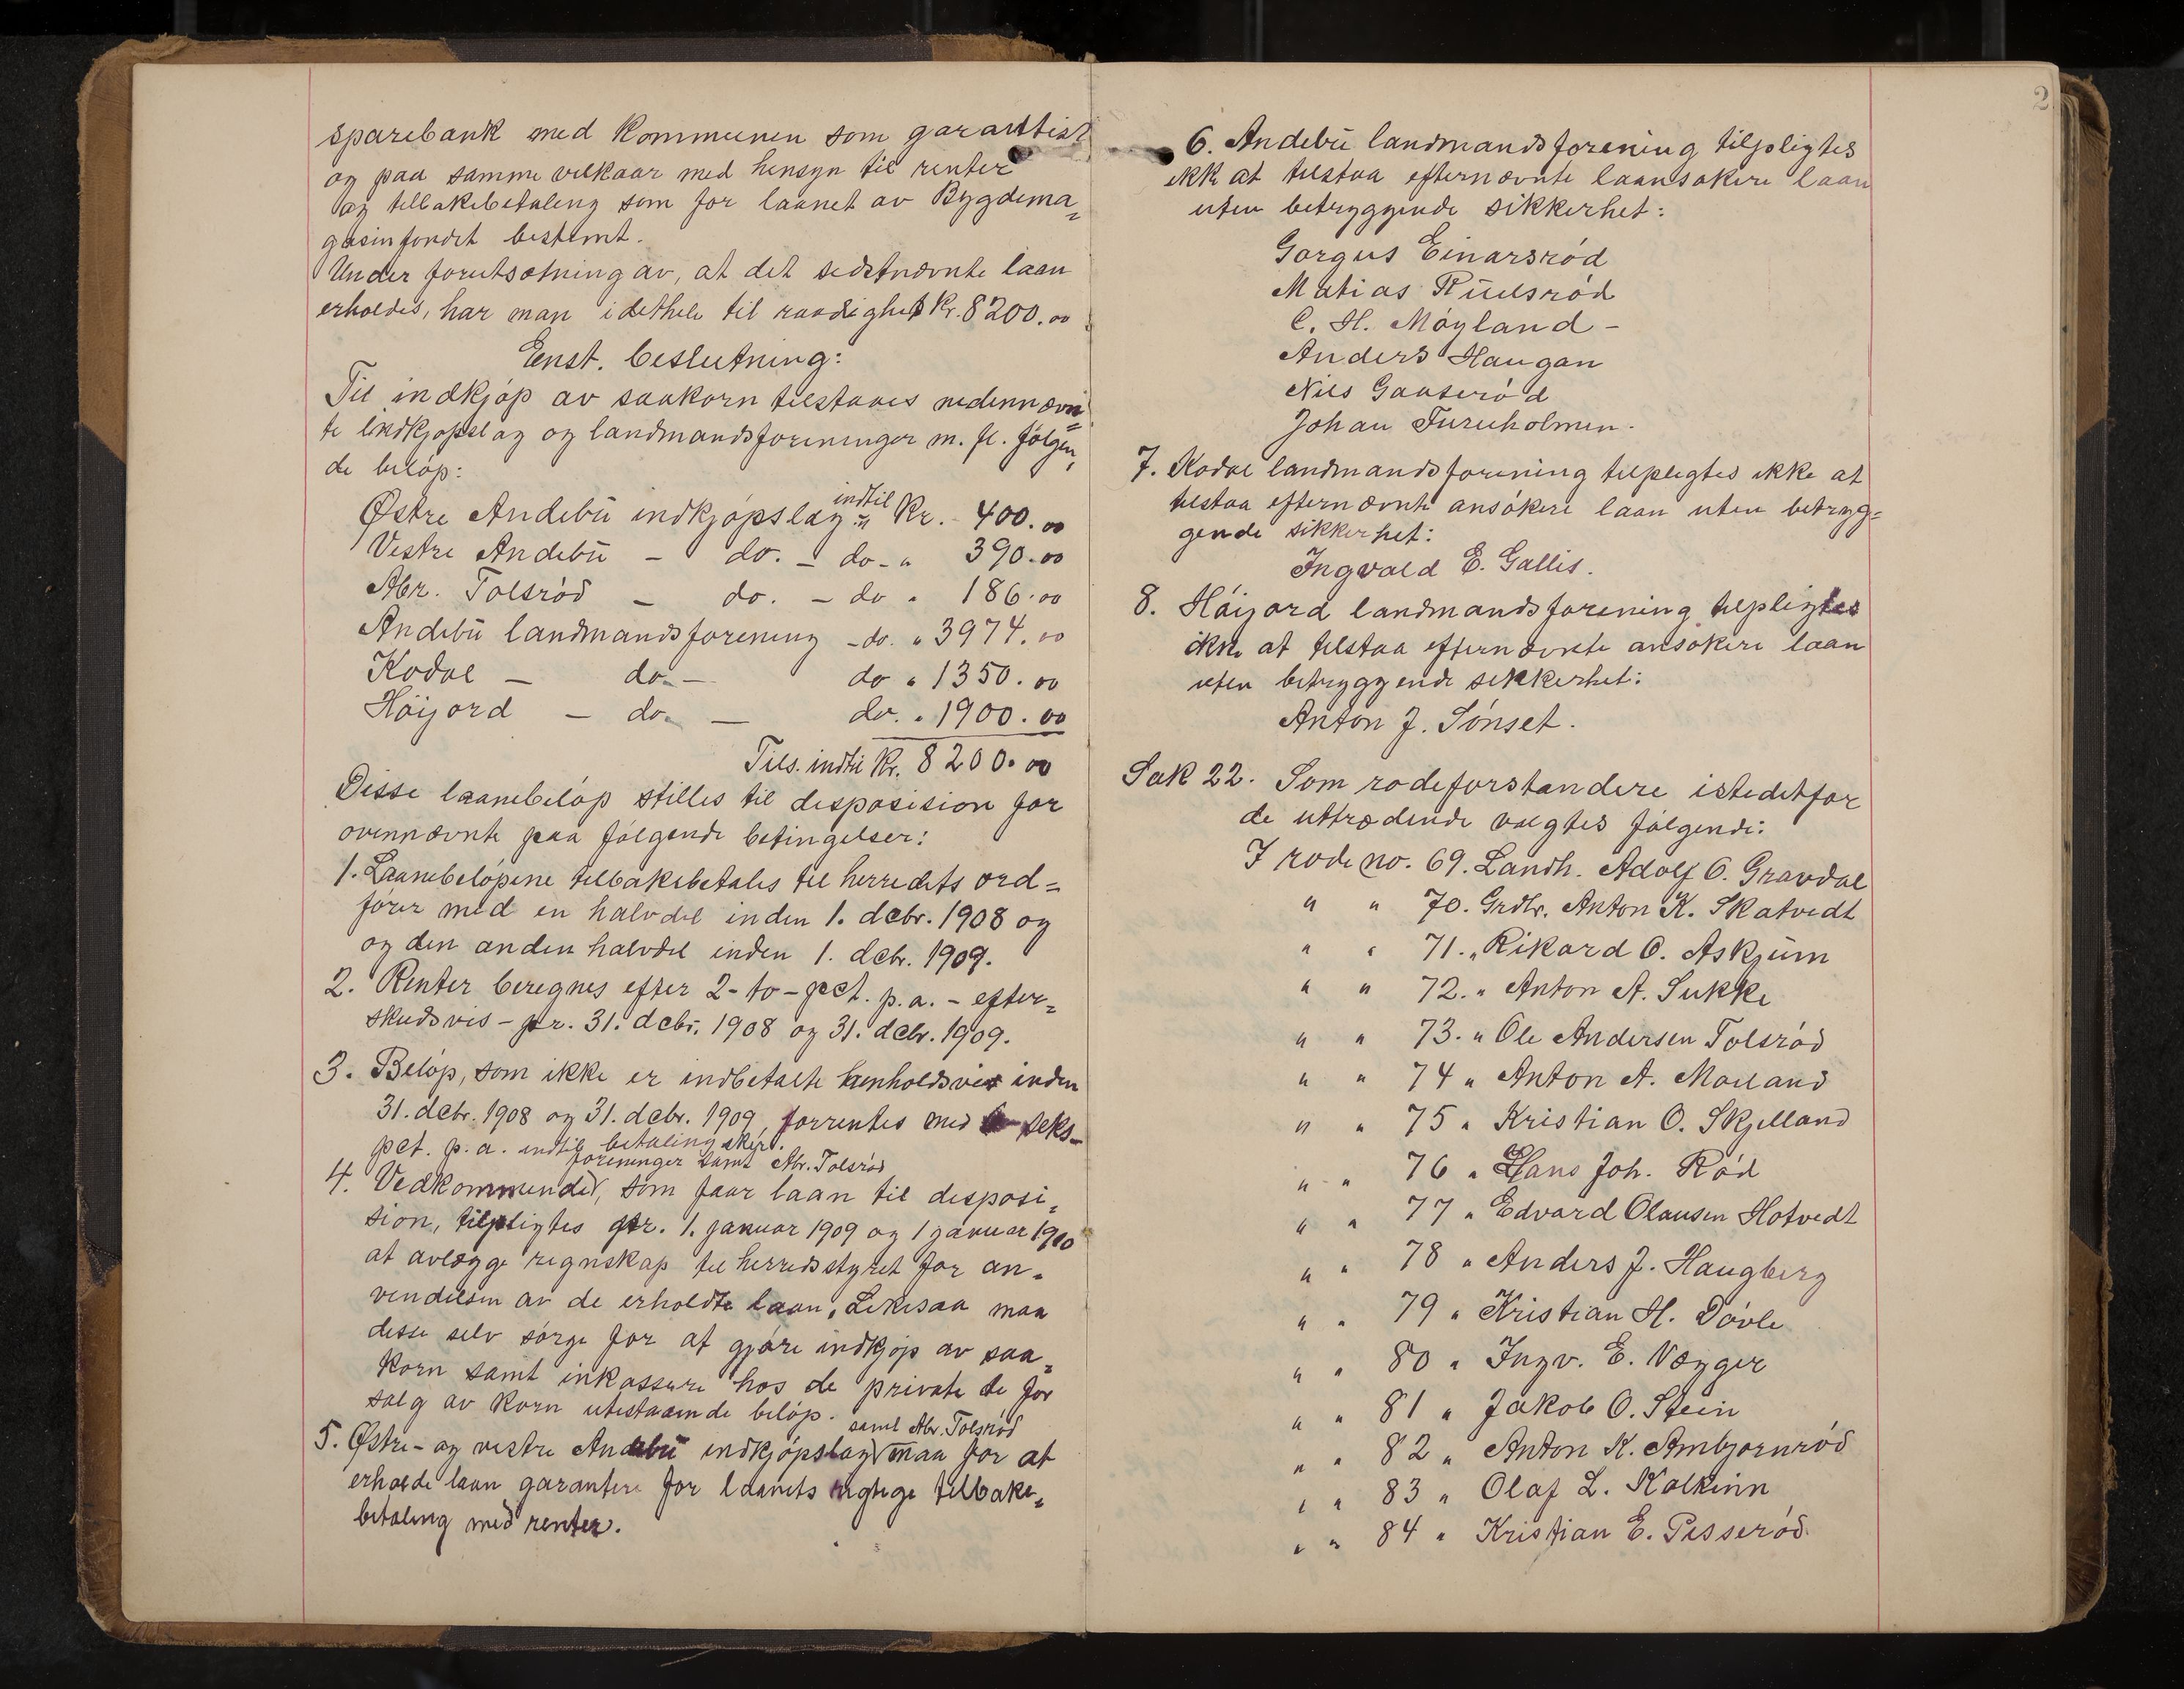 sparebank med kommunen som garantist
og paa samme vilkaar med hensyn til renter
og tilbakebetaling som for laanet av Bygdema=
gasinfondet bestemt.
Under forutsætning av, at det sidstnævnte laan
erholdes, har man i dethele til raadighet kr. 8200.00
Enst. beslutning:
Til indkjøp av saakorn tilstaaes nedennævn=
te indkjøpslag og landmandsforeninger m. fl. følgen=
de beløp:
Østre Andebu indkjøpslag indtil kr. 400.00
Vestre Andebu - do. - do - " 390.00
Abr. Tolsrød - do. - do " 186.00
Andebu landmandsforening - do. " 3974.00
Kodal - do. - do " 1350.00
Høijord - do. - do. " 1900.00
Tils. indtil kr. 8200.00
Disse laanebeløp stilles til disposision for
ovennævnte paa følgende betingelser:
1. Laanebeløpene tilbakebetales til herredets ord=
fører med en halvdel inden 1. decbr. 1908 og
og den anden halvdel inden 1. decbr. 1909.
2. Renter beregnes efter 2 - to - pct. p. a. - efter=
skudsvis - pr. 31. decbr. 1908 og 31. decbr. 1909.
3. Beløp, som ikke er indbetalte henholdsvis inden
31. decbr. 1908 og 31. decbr. 1909, forrentes med seks-
pct. p. a. indtil betaling skjer.
foreninger samt Abr. Tolsrød
4. Vedkommende, som faar laan til disposi=
sion, tilpligtes pr. 1. januar 1909 og 1 januar 1910
at avlægge regnskap til herredsstyret for an=
vendelsen av de erholdte laan. Likesaa maa
disse selv sørge for at gjøre indkjøp av saa=
korn samt inkassere hos de private de for
salg av korn utestaaende beløp.
samt Abr. Tolsrød
5. Østre- og vestre Andebu indkjøpslag maa for at
erholde laan garantere for laanets rigtige tilbake=
betaling med renter.
2
6. Andebu landmandsforening tilpligtes
ikke at tilstaa efternævnte laansøkere laan
uten betryggende sikkerhet:
Gorgus Einarsrød
Matias Ruelsrød
C. H. Møyland -
Anders Haugan
Nils Gaaserød
Johan Furuholmen.
7. Kodal landmandsforening tilpligtes ikke at
tilstaa efternævnte ansøkere laan uten betryg=
gende sikkerhet:
Ingvald E. Gallis.
8. Høijord landmandsforening tilpligtes
ikke at tilstaa efternævnte ansøkere laan
uten betryggende sikkerhet:
Anton J. Sønset.
Sak 22. Som rodeforstandere istedetfor
de uttrædende valgtes følgende:
I rode no. 69. Landh. Adolf O. Gravdal
" " 70. Grdbr. Anton K. Skatvedt
" " 71. " Rikard O. Askjum
" " 72. " Anton A. Sukke
" " 73. " Ole Andersen Tolsrød
" " 74 " Anton A. Moland
" " 75 " Kristian O. Skjelland
" " 76 " Hans Joh. Rød
" " 77 " Edvard Olausen Hotvedt
" " 78 " Anders J. Haugberg
" " 79 " Kristian H. Døvle
" " 80 " Ingv. E. Vægger
" " 81 " Jakob O. Stein
" " 82 " Anton K. Ambjørnrød
" " 83 " Olaf L. Kolkinn
" " 84 " Kristian E. Pisserød